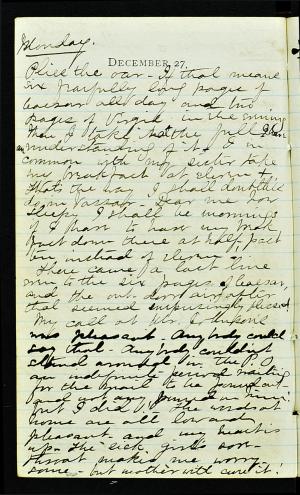 Monday.
DECEMBER 27.
Plies the oar - If that means
six fearfully long pages of
Caesar all day and two
pages of Virgil in the evening
then I take in the full
understanding of it. I in
common with my sister take
my breakfast at eleven
That's the way I shall doubtless
do in Vassar - Dear me how
sleepy I shall be mornings
if I have to have my break
fast down there at half past
instead of eleven
There came a last line
to the six pages of Caesar,
and the out door air after
that seemed
My call at Mr.
was pleasant Anybody could
say that. Anybody could
stand around in the P.O.
an indefinite period waiting
for the mail to be
and not any in
but I did. The
home are all
pleasant and my heart is
up. The sick girl's sore
throat makes me worry
some - but mother will cure it!